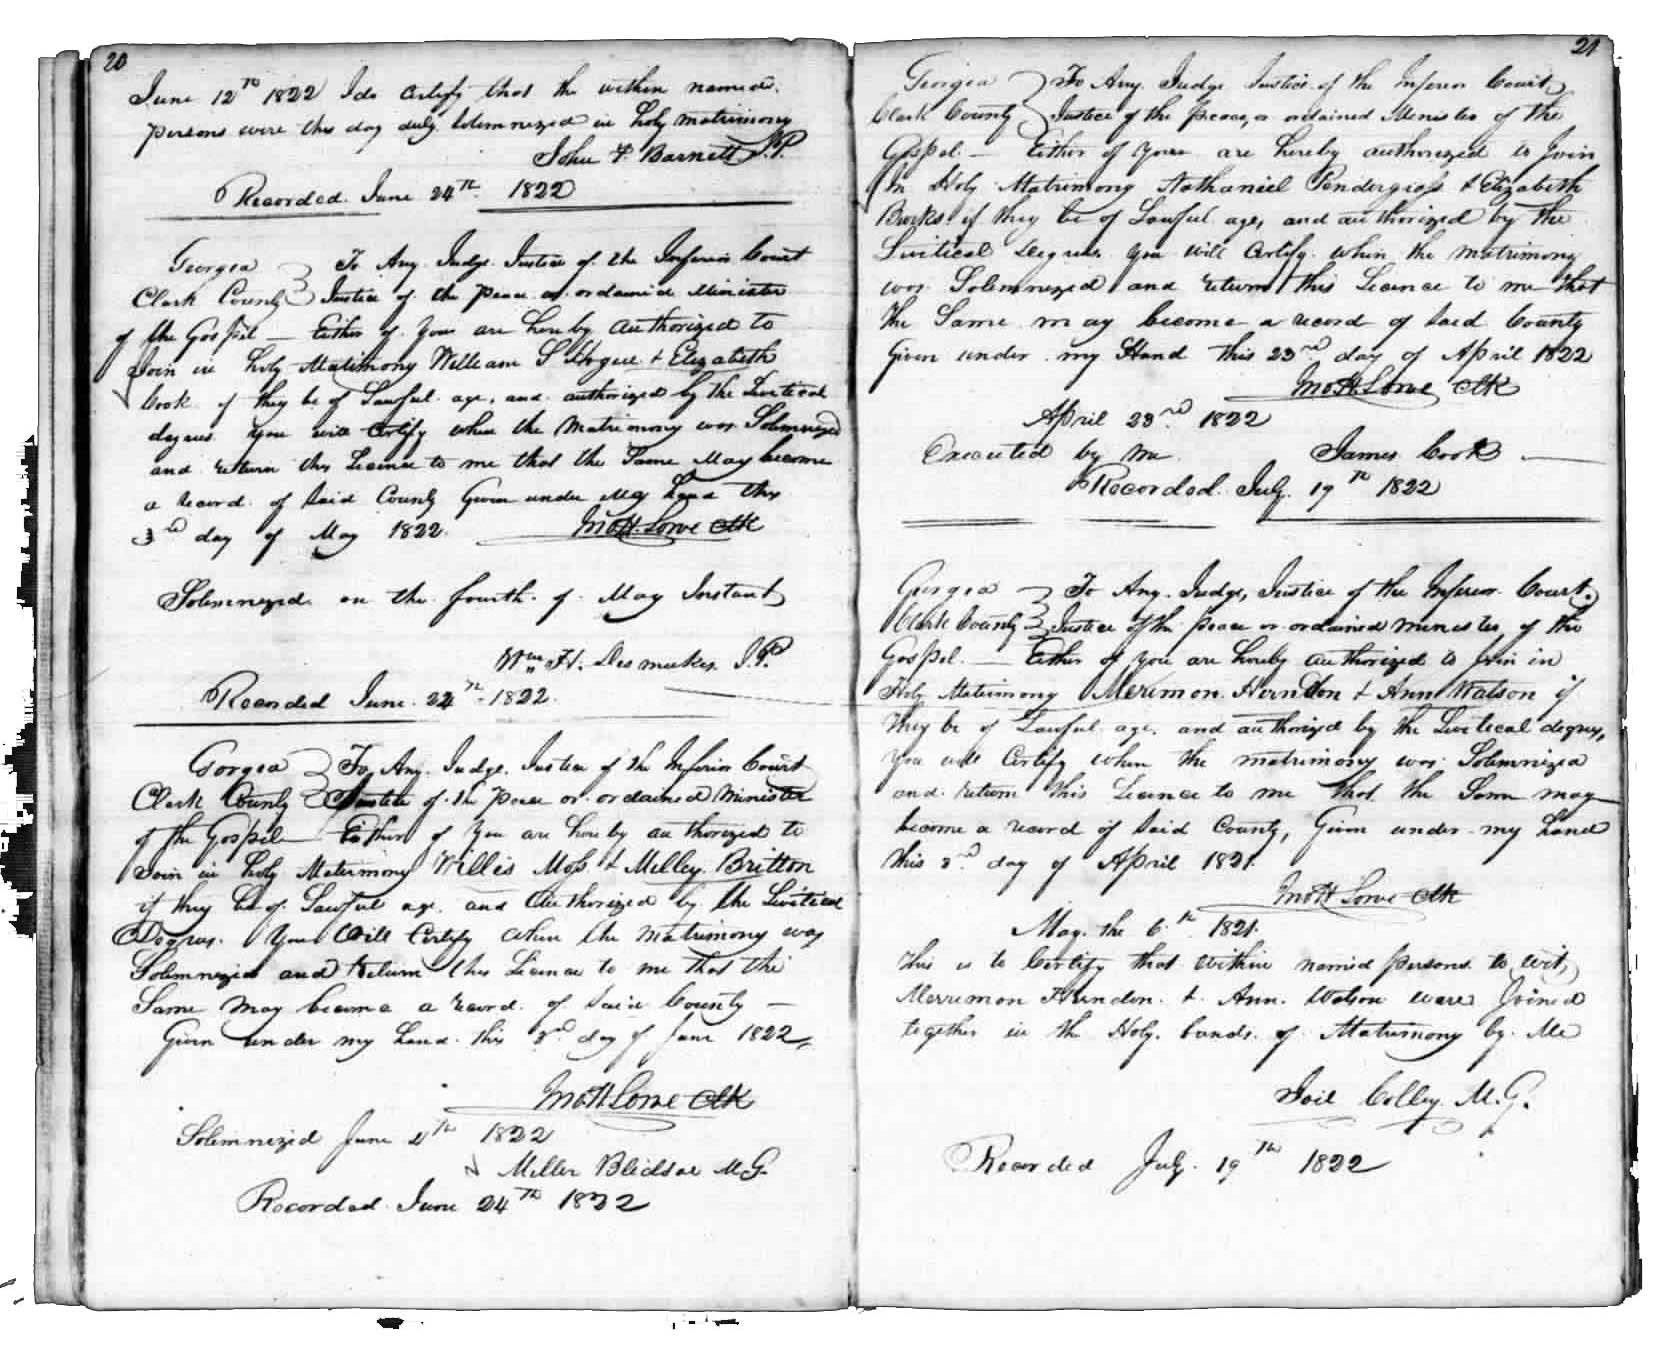 20
June 12th 1822 I do Certify that the within named
persons were this day duly Solemnized in holy matrimony
John F. Barnett J.P.
Recorded June 24th 1822
Georgia } To Any Judge Justice of the Inferior Court
Clark County } Justice of the peace or ordained Minister
of the Gospel — Either of you are hereby authorized to
Join in holy Matimony William S Hogue & Elizabeth
Cook if they be of Lawful age, and authorized by the Livitical
degrees you will Certify when the Matrimony was Solemnized
and return this Licence to me that the Same May become
a record of Said County Given under My hand this
3rd day of May 1822. Jno H. Lowe Clk
Solemnized on the fourth of May Instant
Wm H. Desmukes J.P.
Recorded June 24th 1822.
Gorgia } To Any Judge Justice of the Inferior Court
Clark County } Justice of the peace or ordained Minister
of the Gospel — Either of you are hereby authorized to
Join in holy Matrimony Willis Moss & Milley Britton
if they be of Lawful age, and Authorized by the Livitical
Degrees. You Will Certify when the Matrimony was
Solemnized and Return this Licence to me that the
Same may become a record of Said County —
Given under my hand this 3rd day of June 1822
Jno H Lowe Clk
Solemnized June 4th 1822
Miller Bledsoe M.G.
Recorded June 24th 1822
21
Georgia } To Any Judge Justice of the Inferior Court
Clark County } Justice of the peace, or ordained Minister of the
Gospel — Either of you are hereby authorized to Join
in Holy Matrimony Nathaniel Pendergrass & Elizabeth
Burks if they be of Lawful age, and authorized by the
Livitical degrees you will Certify when the matrimony
was Solemnized and return this Licence to me that
the Same may become a record of Said County
Given under my Hand this 23rd day of April 1822
Jno H Lowe Clk
April 23rd 1822
Executed by me James Cook
Recorded July 19th 1822
Gorgia } To Any Judge, Justice of the Inferior Court
Clark County } Justice of the peace or ordained minister, of the
Gospel — Either of you are hereby authorized to Join in
Holy Matrimony Merimon Herndon & Ann Watson if
they be of Lawful age, and authorized by the Livitical degrees,
you will Certify when the matrimony was Solemnized
and return this Licence to me that the Same may
become a record of Said County, Given under my hand
this 3rd day of April 1821.
Jno H Lowe Clk
May the 6th 1821.
This is to Certify that within named persons to wit,
Merrimon Herndon & Ann Watson were Joined
together in the Holy bands of Matrimony by Me
Colley M.G.
Recorded July 19th 1822